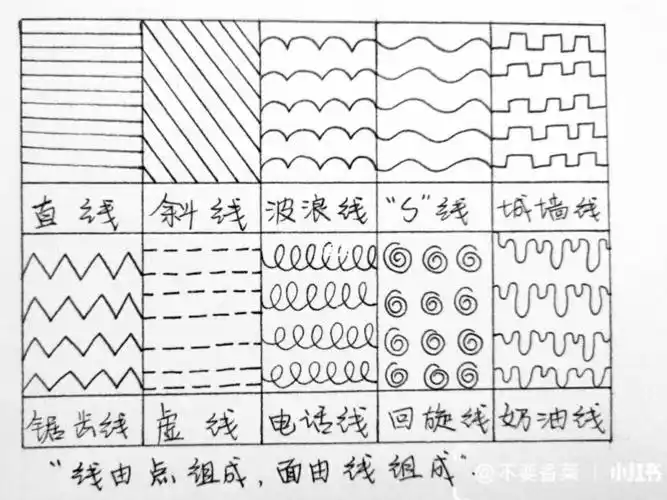 直线 斜线 波浪线 “S”线 城墙线
锯齿线 虚线 电话线 回旋线 奶油线
“线由点组成，面由线组成”
小红书